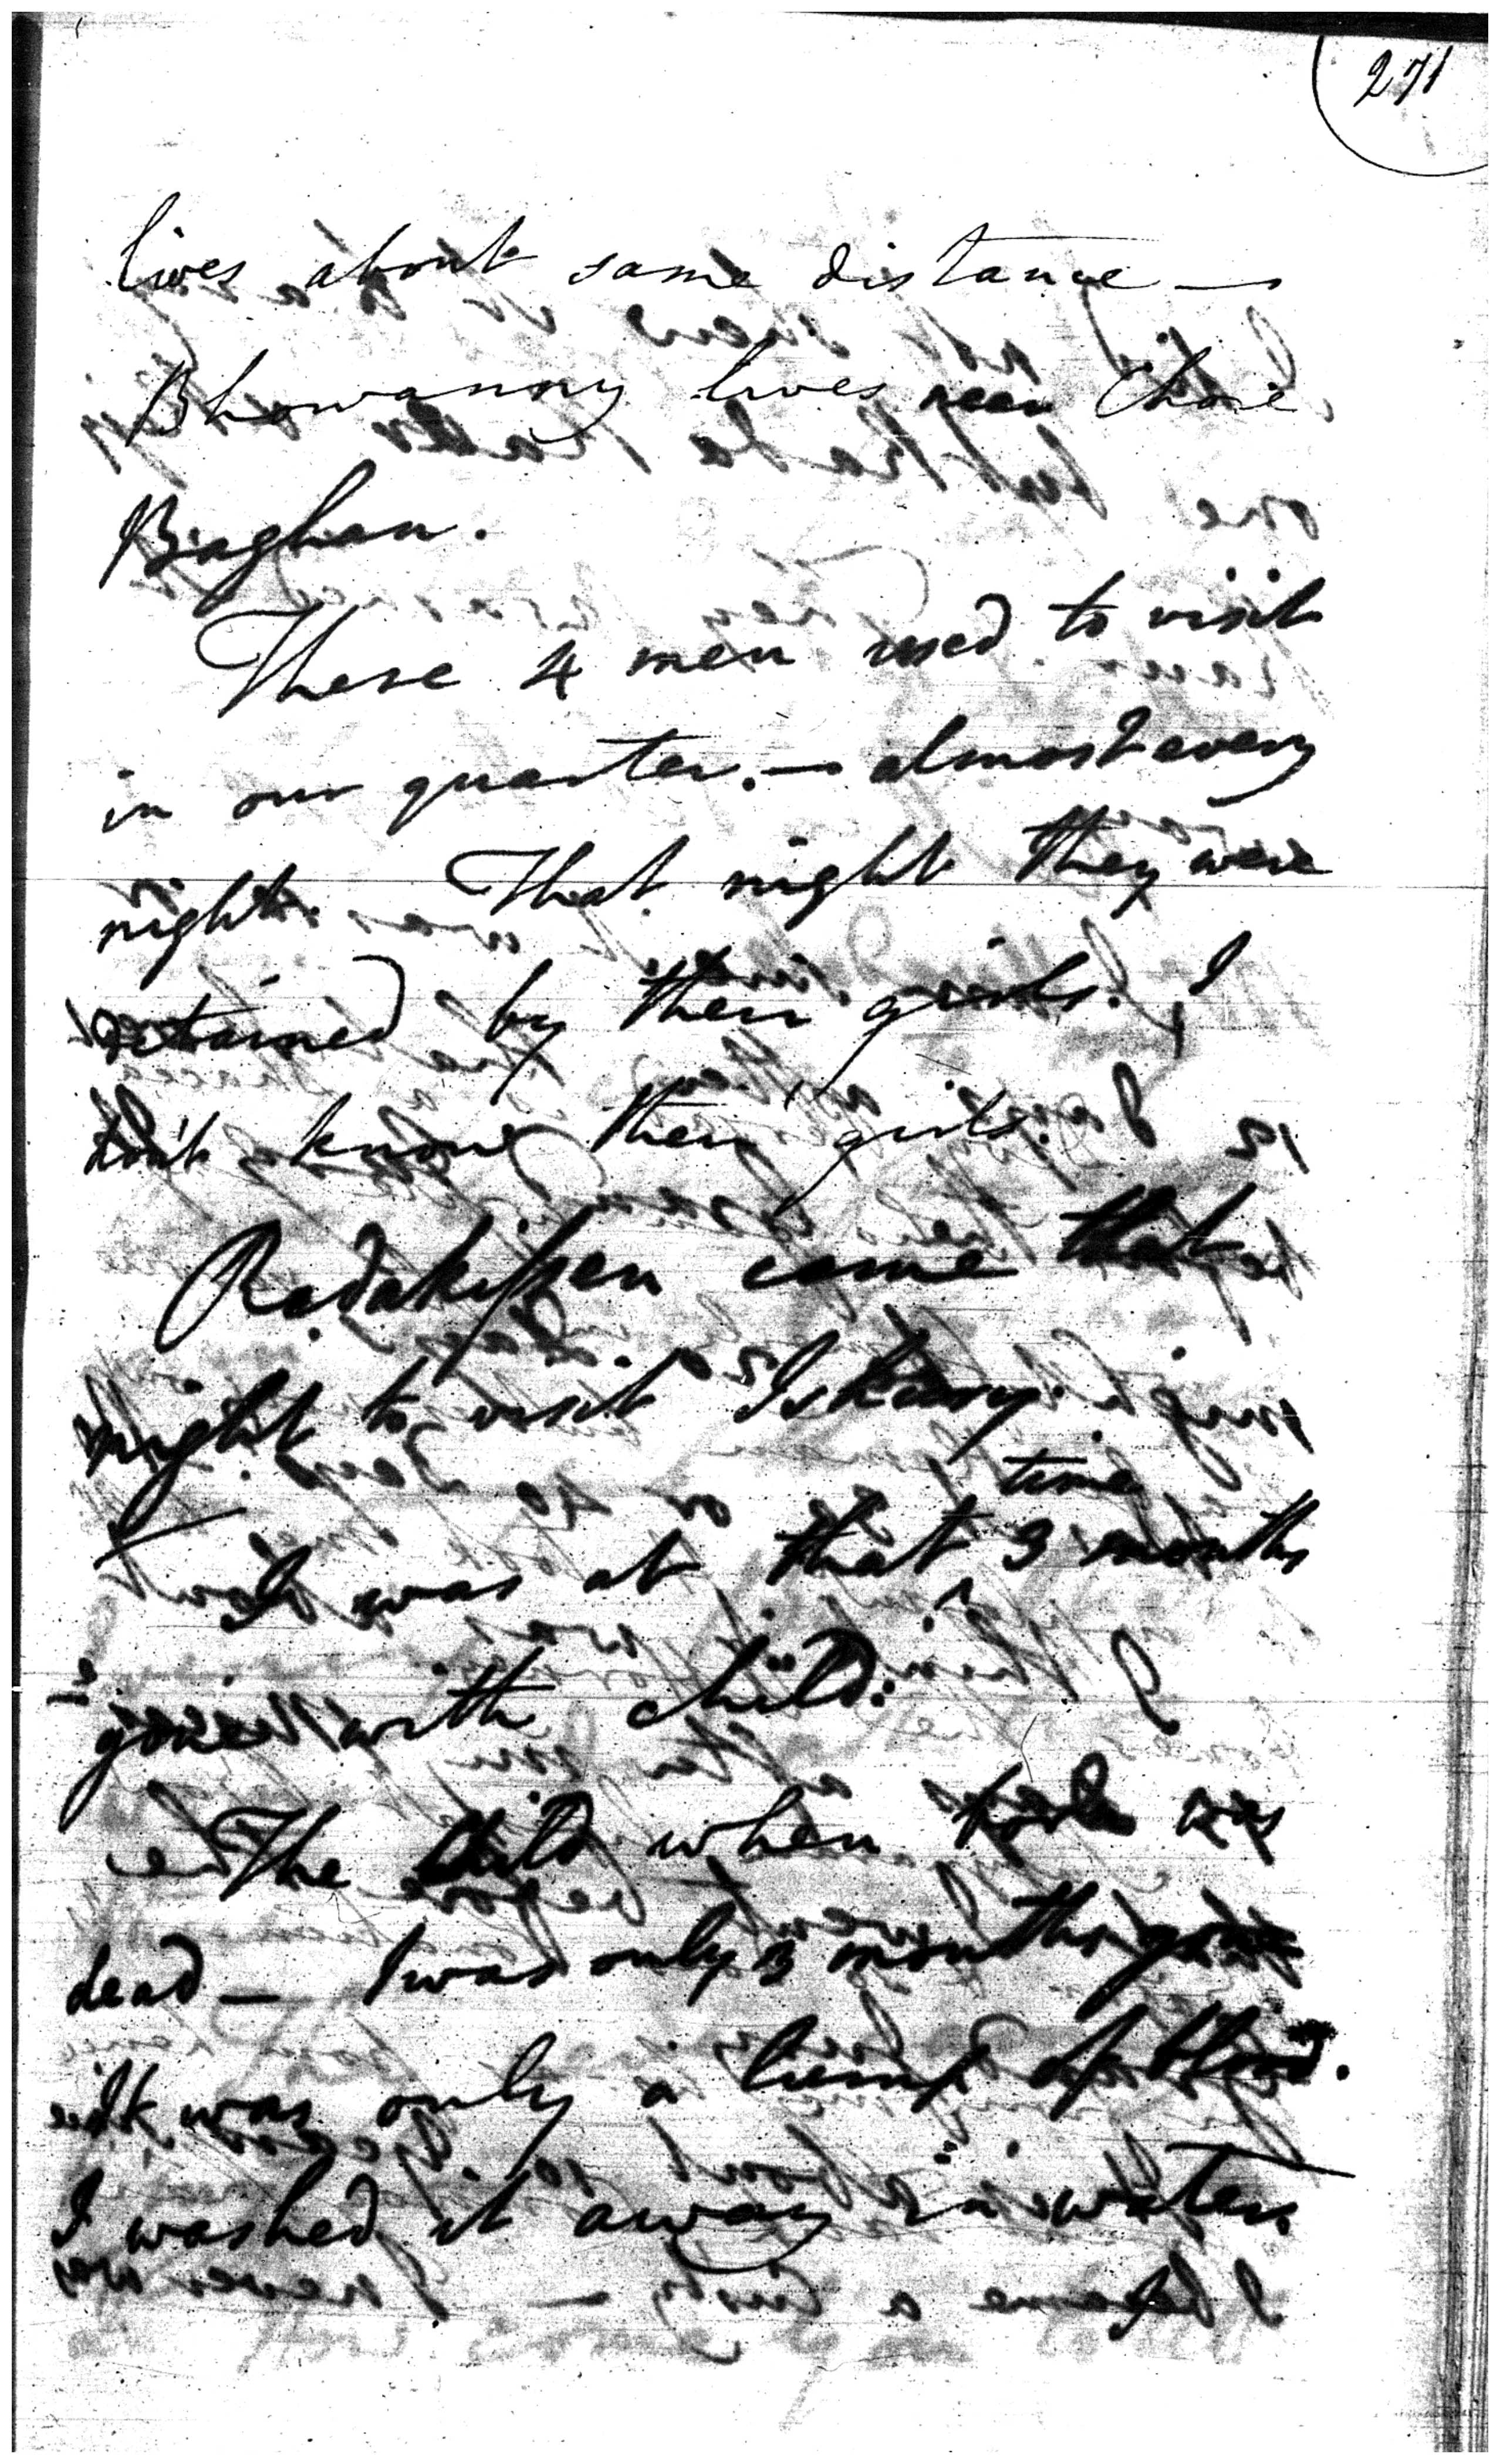 271
lives about same distance —
Bhowanny lives near Chore
Baghan.
These 4 men used to visit
in our quarter. — almost every
night. That night they were
detained by their girls. I
don't know their girls.
Radakissen came that
night to visit
time
I was at that ^ 3 months
gone with child.
The child when born was
dead — I was only 3 months gone
It was only a lump of blood.
I washed it away in water